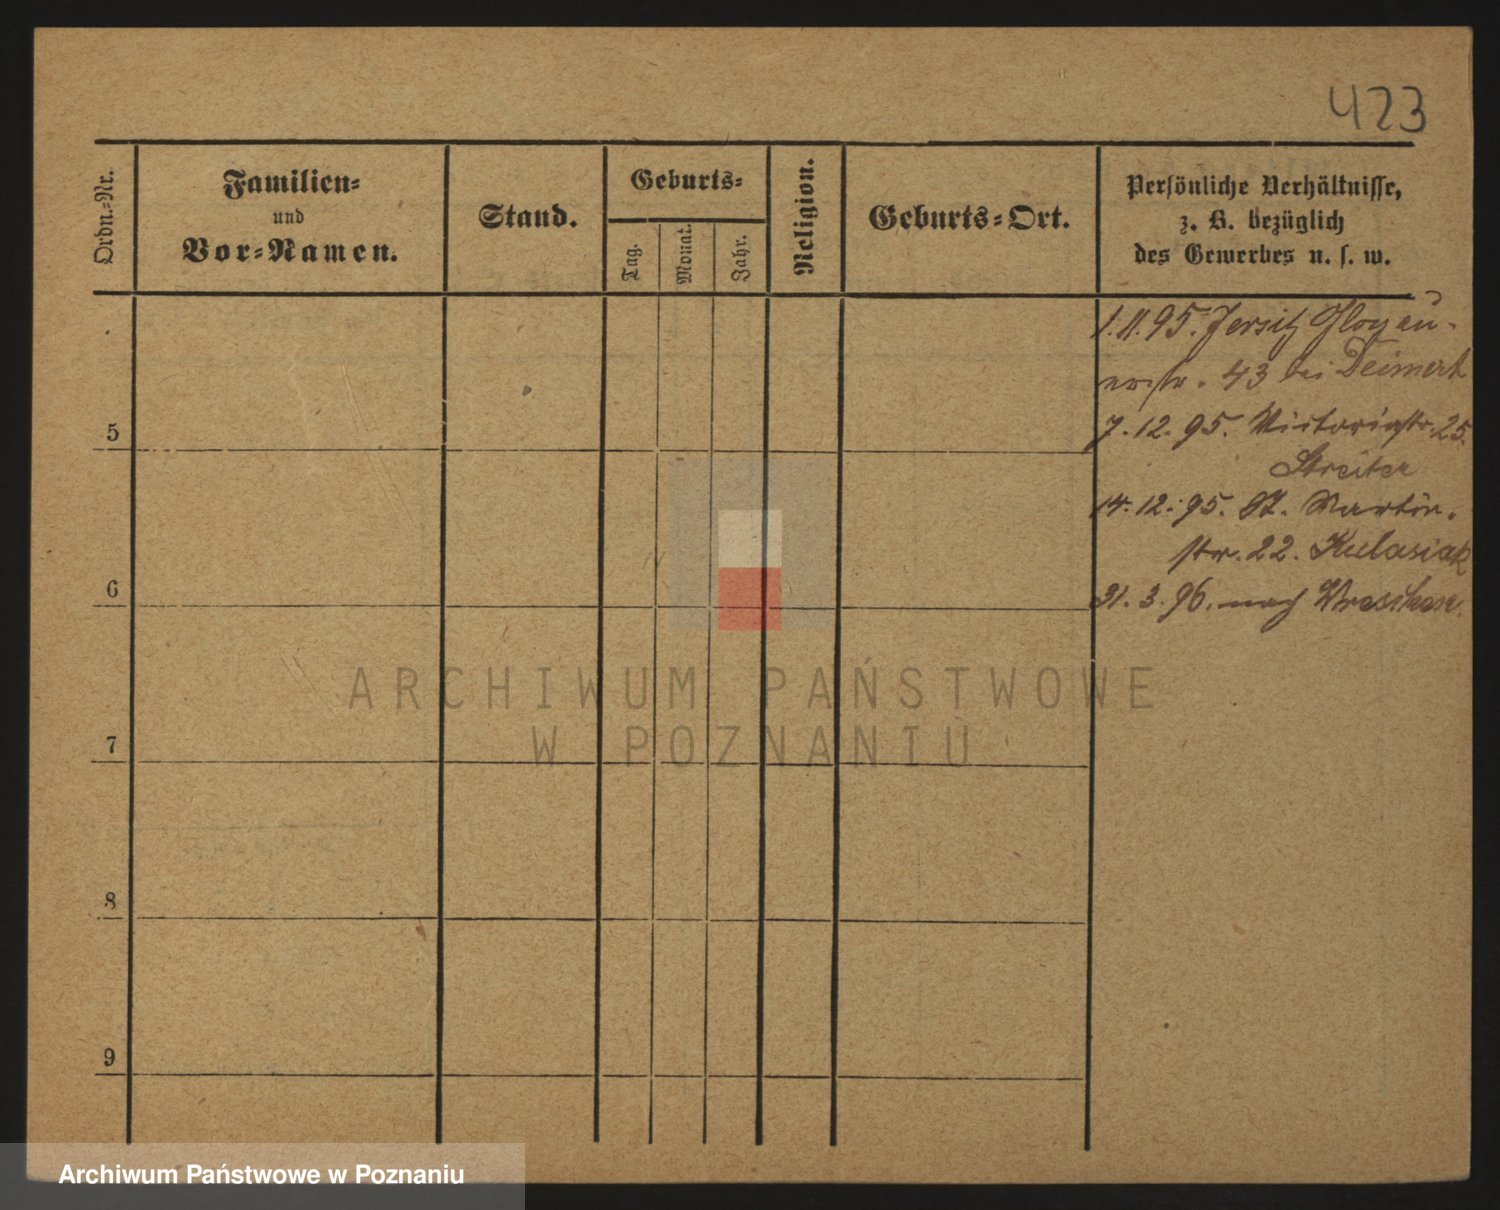 423
Ordn.-Nr.
Familien-
und
Vor-Namen.
Stand.
Geburts-
Tag.
Monat.
Jahr.
Religion.
Geburts-Ort.
Persönliche Verhältnisse,
z. B. bezüglich
des Gewerbes u. s. w.
1.11.95. Jersitz Glogau-
erstr. 43 bei Deimert
7.12.95. Victoriastr. 25.
Streiter
14.12.95. St. Martin-
str. 22. Kulasiak
31.3.96. nach Wreschen.
5
6
7
8
9
ARCHIWUM PAŃSTWOWE
W POZNANIU
Archiwum Państwowe w Poznaniu